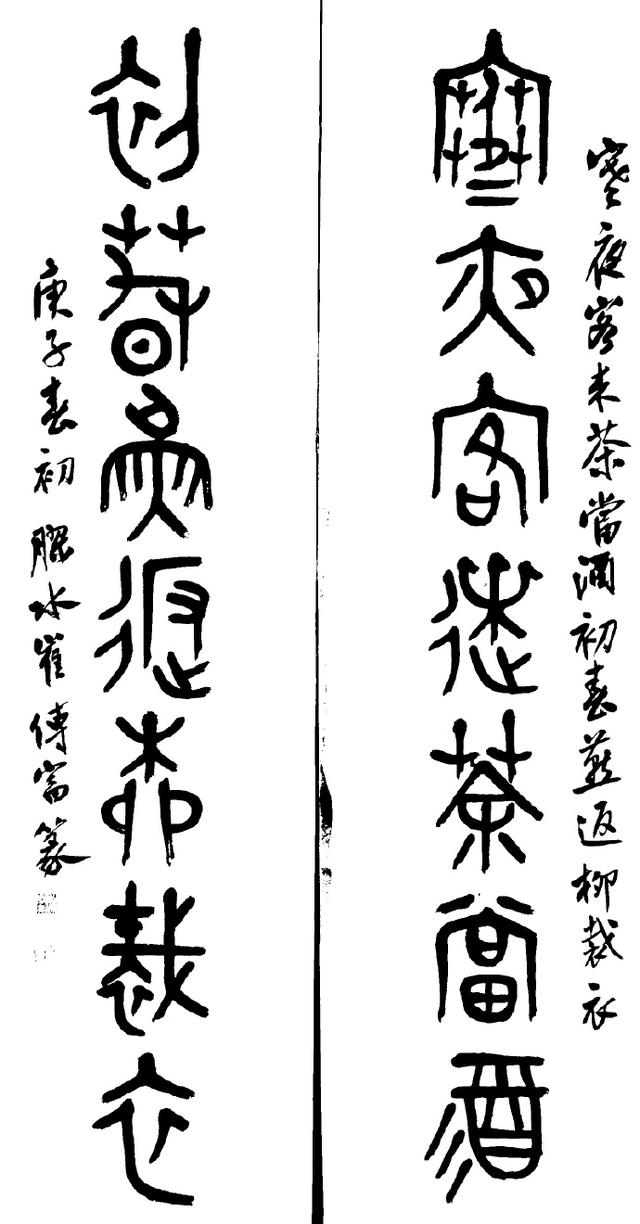 寒夜客来茶當酒初春燕返柳裁衣
寒夜客來茶當酒
初春燕返柳裁衣
庚子春初 膠水崔傳富篆